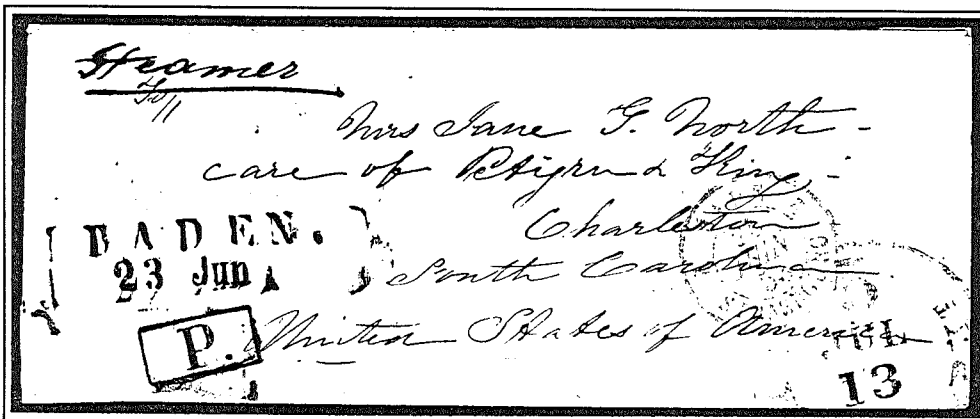 Steamer
Mrs Jane G. North -
care of Petigru & King -
Charleston
South Carolina
United States of America
BADEN.
23 Jun
P.
13